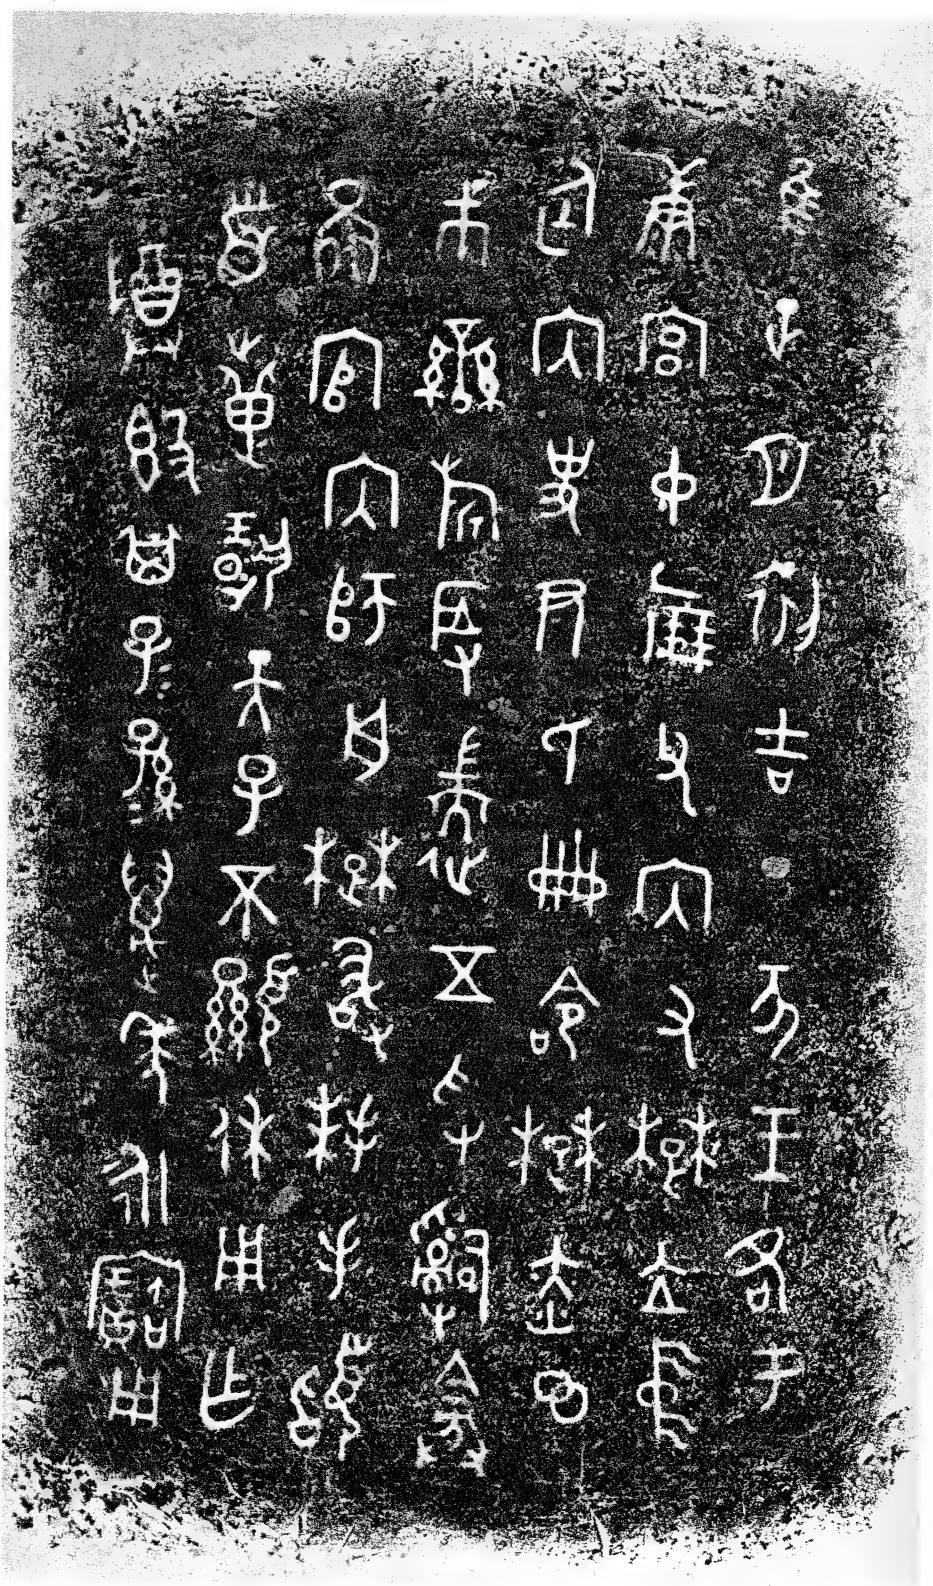 隹正月初吉丁亥王各于
康宮中倗父內又楚立中
廷內史尹氏冊命楚赤
市䜌旂取五寽𤔲
啚官內師舟楚敢拜手𩒨
首疐揚天子不顯休用乍
尊𣪘其子=孫=萬年永寶用